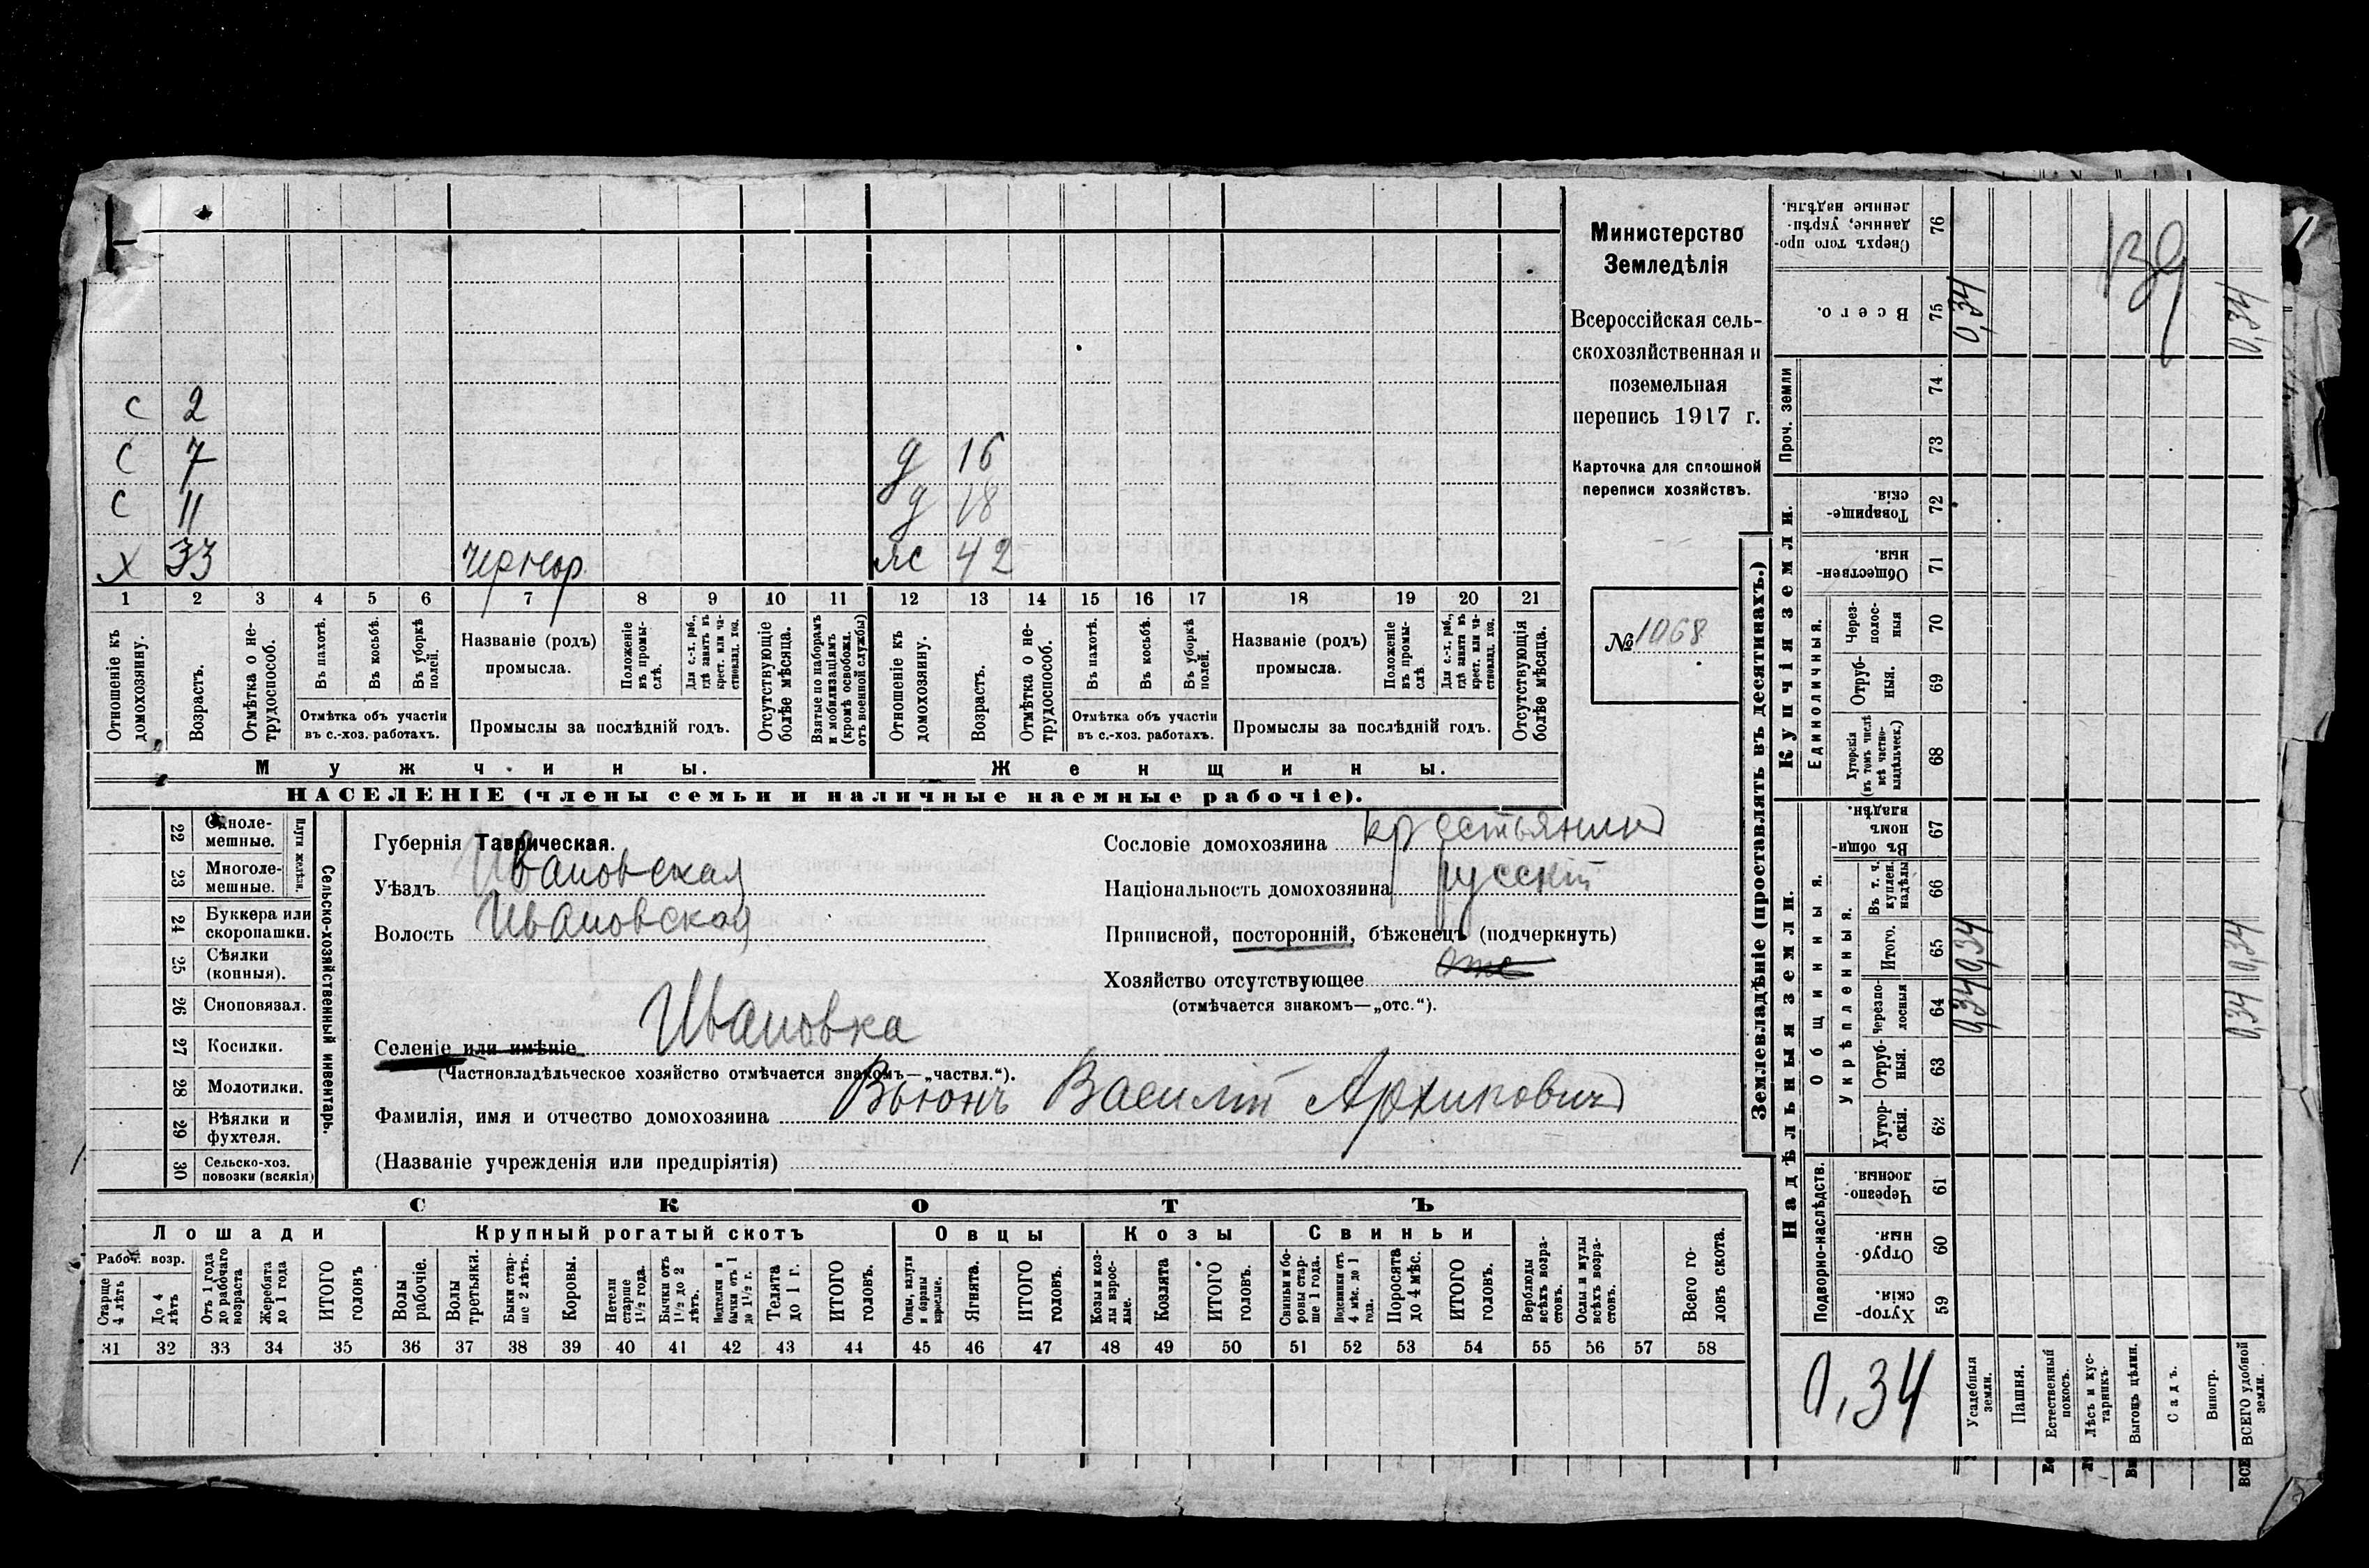 Министерство
Земледѣлія
Всероссійская сель-
скохозяйственная и
поземельная
перепись 1917 г.
Карточка для сплошной
переписи хозяйствъ.
№ 1068
с 2
с 7 д 16
с 11 д 18
х 33 чернор. 42
1 2 3 4 5 6 7 8 9 10 11 12 13 14 15 16 17 18 19 20 21
Отношеніе къ домохозяину.
Возрастъ.
Отмѣтка о не-трудоспособ.
Въ пахотѣ.
Въ косьбѣ.
Въ уборкѣ полей.
Отмѣтка объ участіи
въ с.-хоз. работахъ.
Названіе (родъ)
промысла.
Положеніе въ промы-слѣ.
Для с.-х. раб., гдѣ занятъ въ крест. или ча-стновлад. хоз.
Промыслы за послѣдній годъ.
Отсутствующіе болѣе мѣсяца.
Взятые по наборамъ и мобилизаціямъ (кромѣ освобожд. отъ военной службы)
Отношеніе къ домохозяину.
Возрастъ.
Отмѣтка о не-трудоспособ.
Въ пахотѣ.
Въ косьбѣ.
Въ уборкѣ полей.
Отмѣтка объ участіи
въ с.-хоз. работахъ.
Названіе (родъ)
промысла.
Положеніе въ промы-слѣ.
Для с.-х. раб., гдѣ занята въ крест. или ча-стновлад. хоз.
Промыслы за послѣдній годъ.
Отсутствующія болѣе мѣсяца.
Мужчины. Женщины.
НАСЕЛЕНІЕ (члены семьи и наличные наемные рабочіе).
Сельско-хозяйственный инвентарь.
Плуги желѣзн.
22 Одноле-мешные.
23 Многоле-мешные.
24 Буккера или скоропашки.
25 Сѣялки (конныя).
26 Сноповязал.
27 Косилки.
28 Молотилки.
29 Вѣялки и фухтеля.
30 Сельско-хоз. повозки (всякія)
Губернія Таврическая.
Уѣздъ Ивановская
Волость Ивановская
Сословіе домохозяина крестьянин
Національность домохозяина русскій
Приписной, посторонній, бѣженецъ (подчеркнуть)
Хозяйство отсутствующее отс
(отмѣчается знакомъ—„отс.“).
Селеніе или имѣніе Ивановка
(Частновладѣльческое хозяйство отмѣчается знакомъ—„частвл.“).
Фамилія, имя и отчество домохозяина Вьюнъ Василій Архипович
(Названіе учрежденія или предпріятія)
СКОТЪ
Лошади Крупный рогатый скотъ Овцы Козы Свиньи
Рабоч. возр.
Старше 4 лѣтъ
До 4 лѣтъ
Отъ 1 года до рабочаго возраста
Жеребята до 1 года
ИТОГО головъ
Волы рабочіе.
Волы третьяки.
Быки стар-ше 2 лѣтъ.
Коровы.
Нетели старше 1 1/2 года.
Бычки отъ 1 1/2 до 2 лѣтъ.
Подтелки и бычки отъ 1 до 1 1/2 г.
Телята до 1 г.
ИТОГО головъ.
Овцы, валухи и бараны взрослые.
Ягнята.
ИТОГО головъ.
Козы и коз-лы взрос-лые.
Козлята
ИТОГО головъ.
Свиньи и бо-ровы стар-ше 1 года.
Подсвинки отъ 4 мѣс. до 1 года.
Поросята до 4 мѣс.
ИТОГО головъ.
Верблюды всѣхъ возра-стовъ.
Ослы и мулы всѣхъ возра-стовъ.
Всего го-ловъ скота.
31 32 33 34 35 36 37 38 39 40 41 42 43 44 45 46 47 48 49 50 51 52 53 54 55 56 57 58
Землевладѣніе (проставлять въ десятинахъ.)
Сверхъ того про-данные, укрѣп-ленные надѣлы. 76
Всего. 75 0,34 0,34
Проч. земли
74
73
Купчія земли.
Товарище-скія. 72
Обществен-ныя. 71
Единоличныя.
Через-полос-ныя 70
Отруб-ныя. 69
Хуторскія (въ томъ числѣ всѣ частно-владѣльческ.) 68
Надѣльныя земли.
Общинныя.
Въ общин-номъ владѣн. 67
Укрѣпленныя.
Въ т. ч. куплен. надѣлы 66
Итого. 65 0,34 0,34
Черезпо-лосныя 64 0,34 0,34
Отруб-ныя. 63
Хутор-скія. 62
Подворно-наслѣдств.
Черезпо-лосныя. 61
Отруб-ныя. 60
Хутор-скія. 59
0,34
Усадебныя земли.
Пашня.
Естественный покосъ.
Лѣсъ и кус-тарникъ.
Выгонъ цѣлин.
Садъ.
Виногр.
ВСЕГО удобной земли.